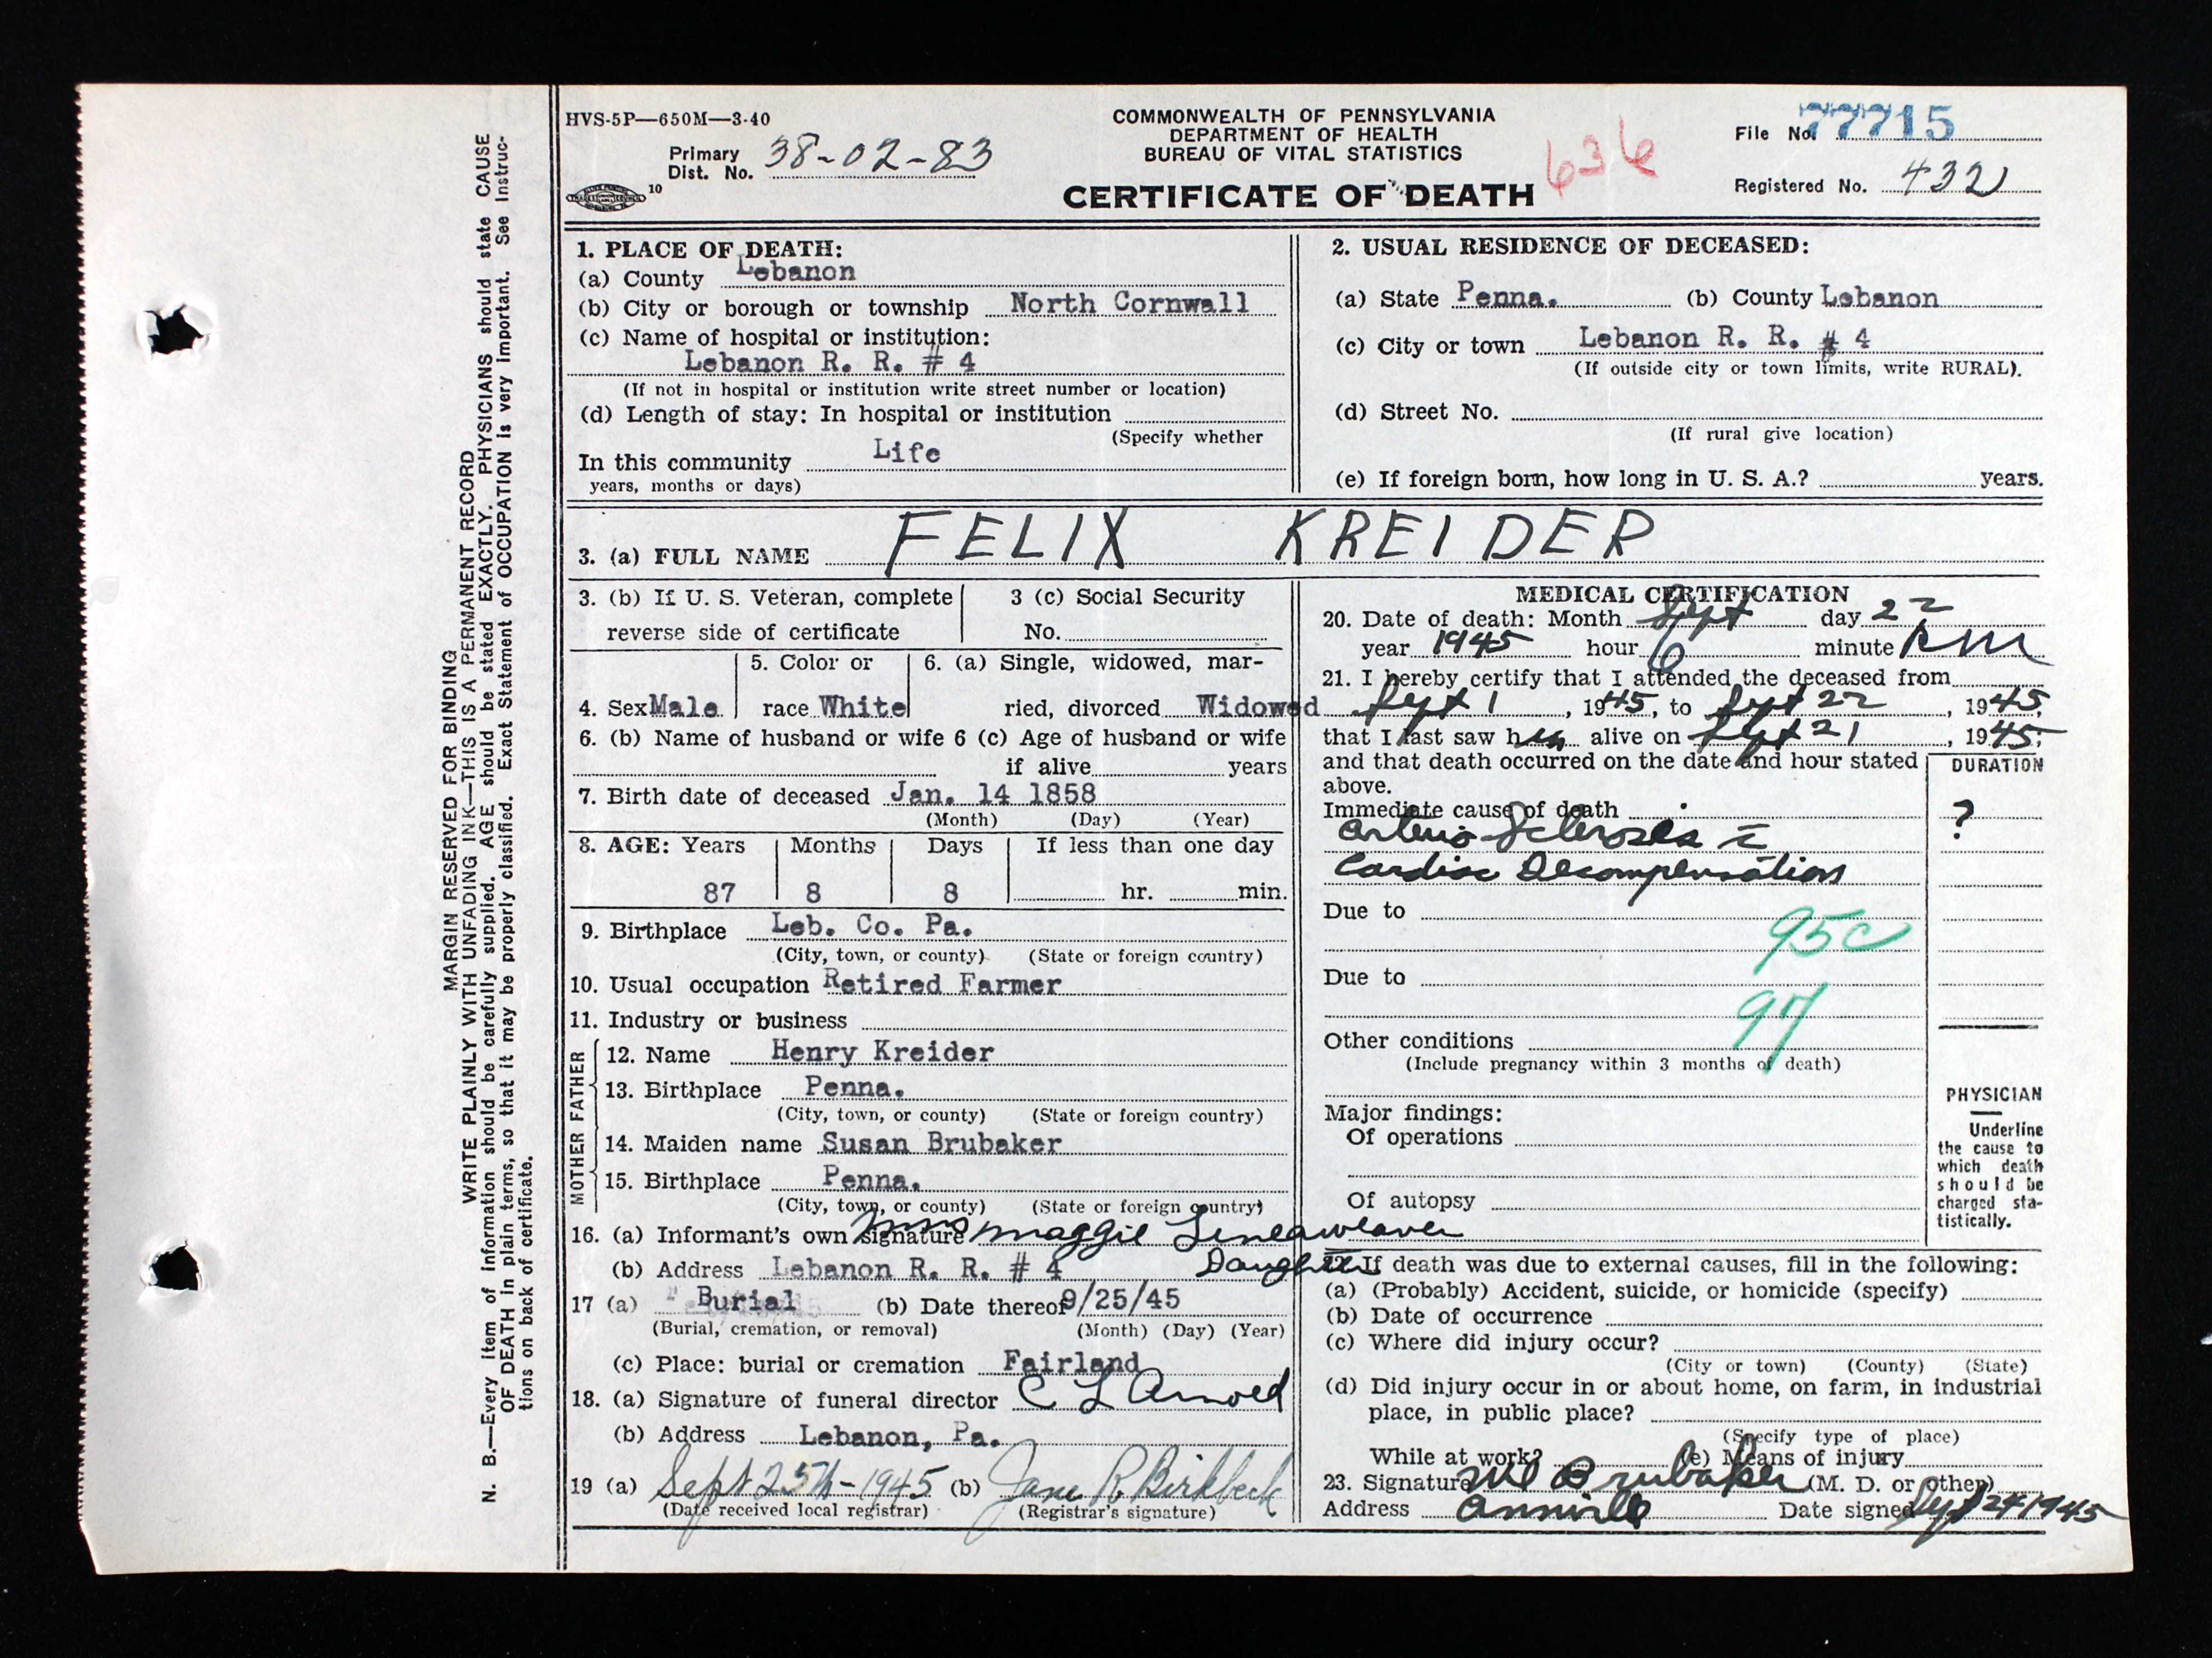 HVS-5P—650M—3-40
Primary Dist. No. 38-02-83
10
COMMONWEALTH OF PENNSYLVANIA
DEPARTMENT OF HEALTH
BUREAU OF VITAL STATISTICS
CERTIFICATE OF DEATH
636
File No. 77715
Registered No. 432
MARGIN RESERVED FOR BINDING
WRITE PLAINLY WITH UNFADING INK—THIS IS A PERMANENT RECORD
N. B.—Every item of information should be carefully supplied. AGE should be stated EXACTLY. PHYSICIANS should state CAUSE
OF DEATH in plain terms, so that it may be properly classified. Exact Statement of OCCUPATION is very important. See Instruc-
tions on back of certificate.
1. PLACE OF DEATH:
(a) County Lebanon
(b) City or borough or township North Cornwall
(c) Name of hospital or institution:
Lebanon R. R. # 4
(If not in hospital or institution write street number or location)
(d) Length of stay: In hospital or institution
(Specify whether
In this community Life
years, months or days)
2. USUAL RESIDENCE OF DECEASED:
(a) State Penna. (b) County Lebanon
(c) City or town Lebanon R. R. # 4
(If outside city or town limits, write RURAL).
(d) Street No.
(If rural give location)
(e) If foreign born, how long in U. S. A.? years.
3. (a) FULL NAME FELIX KREIDER
3. (b) If U. S. Veteran, complete
reverse side of certificate
3 (c) Social Security
No.
4. Sex Male
5. Color or
race White
6. (a) Single, widowed, mar-
ried, divorced Widowed
6. (b) Name of husband or wife 6 (c) Age of husband or wife
if alive years
7. Birth date of deceased Jan. 14 1858
(Month) (Day) (Year)
8. AGE: Years Months Days If less than one day
87 8 8 hr. min.
9. Birthplace Leb. Co. Pa.
(City, town, or county) (State or foreign country)
10. Usual occupation Retired Farmer
11. Industry or business
FATHER
12. Name Henry Kreider
13. Birthplace Penna.
(City, town, or county) (State or foreign country)
MOTHER
14. Maiden name Susan Brubaker
15. Birthplace Penna.
(City, town, or county) (State or foreign country)
16. (a) Informant's own signature Mrs Maggie Lineaweaver
Daughter
(b) Address Lebanon R. R. # 4
17 (a) Burial (b) Date thereof 9/25/45
(Burial, cremation, or removal) (Month) (Day) (Year)
(c) Place: burial or cremation Fairland
18. (a) Signature of funeral director C L Arnold
(b) Address Lebanon, Pa.
19 (a) Sept 25th-1945 (b) Jane R. Birkbeck
(Date received local registrar) (Registrar's signature)
MEDICAL CERTIFICATION
20. Date of death: Month Sept day 22
year 1945 hour 6 minute PM
21. I hereby certify that I attended the deceased from
Sept 1, 1945, to Sept 22, 1945;
that I last saw him alive on Sept 21, 1945;
and that death occurred on the date and hour stated
above.
DURATION
Immediate cause of death
?
Arterio Sclerosis c̄
Cardiac Decompensation
Due to
95c
Due to
97
Other conditions
(Include pregnancy within 3 months of death)
Major findings:
Of operations
Of autopsy
PHYSICIAN
Underline
the cause to
which death
should be
charged sta-
tistically.
22. If death was due to external causes, fill in the following:
(a) (Probably) Accident, suicide, or homicide (specify)
(b) Date of occurrence
(c) Where did injury occur?
(City or town) (County) (State)
(d) Did injury occur in or about home, on farm, in industrial
place, in public place?
(Specify type of place)
While at work? (e) Means of injury
23. Signature Brubaker (M. D. or other)
Address Annville Date signed Sept 24 1945